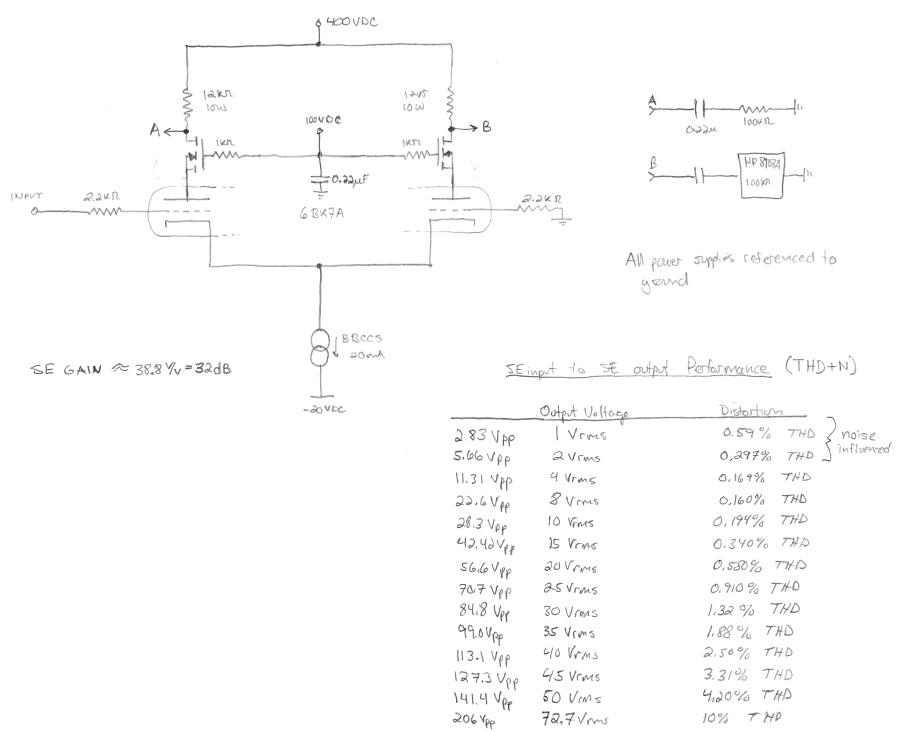 400VDC
12KΩ
10W
12KΩ
10W
A
B
100VDC
1KΩ
1KΩ
0.22µF
INPUT
2.2KΩ
6BK7A
2.2KΩ
BBCCS
20mA
-20VDC
SE GAIN ≈ 38.8 V/V = 32dB
A
0.22µ
100KΩ
B
HP 8903A
100KΩ
All power supplies referenced to
ground
SE input to SE output Performance (THD+N)
Output Voltage Distortion
2.83 Vpp 1 Vrms 0.59% THD
5.66 Vpp 2 Vrms 0.297% THD
noise
influenced
11.31 Vpp 4 Vrms 0.169% THD
22.6 Vpp 8 Vrms 0.160% THD
28.3 Vpp 10 Vrms 0.194% THD
42.42 Vpp 15 Vrms 0.340% THD
56.6 Vpp 20 Vrms 0.580% THD
70.7 Vpp 25 Vrms 0.910% THD
84.8 Vpp 30 Vrms 1.32% THD
99.0 Vpp 35 Vrms 1.88% THD
113.1 Vpp 40 Vrms 2.50% THD
127.3 Vpp 45 Vrms 3.31% THD
141.4 Vpp 50 Vrms 4.20% THD
206 Vpp 72.7 Vrms 10% THD